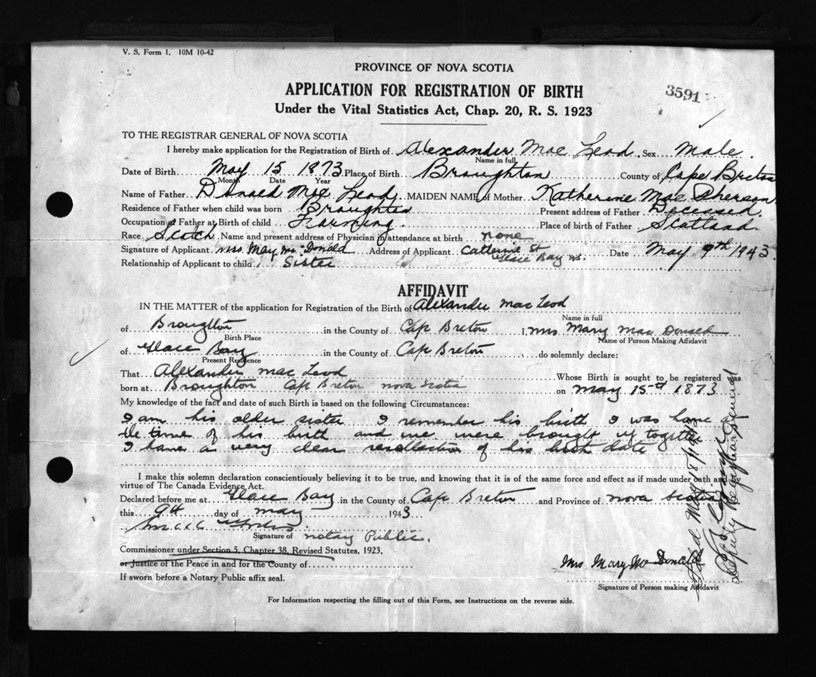 V. S. Form 1. 10M 10-42
PROVINCE OF NOVA SCOTIA
APPLICATION FOR REGISTRATION OF BIRTH
3591
Under the Vital Statistics Act, Chap. 20, R. S. 1923
TO THE REGISTRAR GENERAL OF NOVA SCOTIA
I hereby make application for the Registration of Birth of Alexander Mac Leod Sex Male
Name in full
Date of Birth May 15 1873 Place of Birth Broughton County of Cape Breton
Month Date Year
Name of Father Donald Mac Leod MAIDEN NAME of Mother Katherine Mac Pherson
Residence of Father when child was born Broughton Present address of Father Deceased
Occupation of Father at Birth of child Farming Place of birth of Father Scotland
Race Scotch Name and present address of Physician in attendance at birth none
Signature of Applicant Mrs Mary Mc Donald Address of Applicant Catherine St Glace Bay N.S. Date May 9th 1943
Relationship of Applicant to child Sister
AFFIDAVIT
IN THE MATTER of the application for Registration of the Birth of Alexander Mac Leod
Name in full
of Broughton in the County of Cape Breton I, Mrs Mary Mac Donald
Birth Place Name of Person Making Affidavit
of Glace Bay in the County of Cape Breton do solemnly declare:
Present Residence
That Alexander Mac Leod Whose Birth is sought to be registered was
born at Broughton Cape Breton Nova Scotia on May 15th 1873
My knowledge of the fact and date of such Birth is based on the following Circumstances:
I am his older sister I remember his birth I was home
the time of his birth and we were brought up together
I have a very clear recollection of his birth date
I make this solemn declaration conscientiously believing it to be true, and knowing that it is of the same force and effect as if made under oath and
virtue of The Canada Evidence Act.
Declared before me at Glace Bay in the County of Cape Breton and Province of Nova Scotia
this 9th day of May 1943
Signature of Notary Public.
Commissioner under Section 5, Chapter 38, Revised Statutes, 1923,
or Justice of the Peace in and for the County of
If sworn before a Notary Public affix seal.
Mrs. Mary Mc Donald
Signature of Person making Affidavit
For Information respecting the filling out of this Form, see Instructions on the reverse side.
Deputy Registrar General